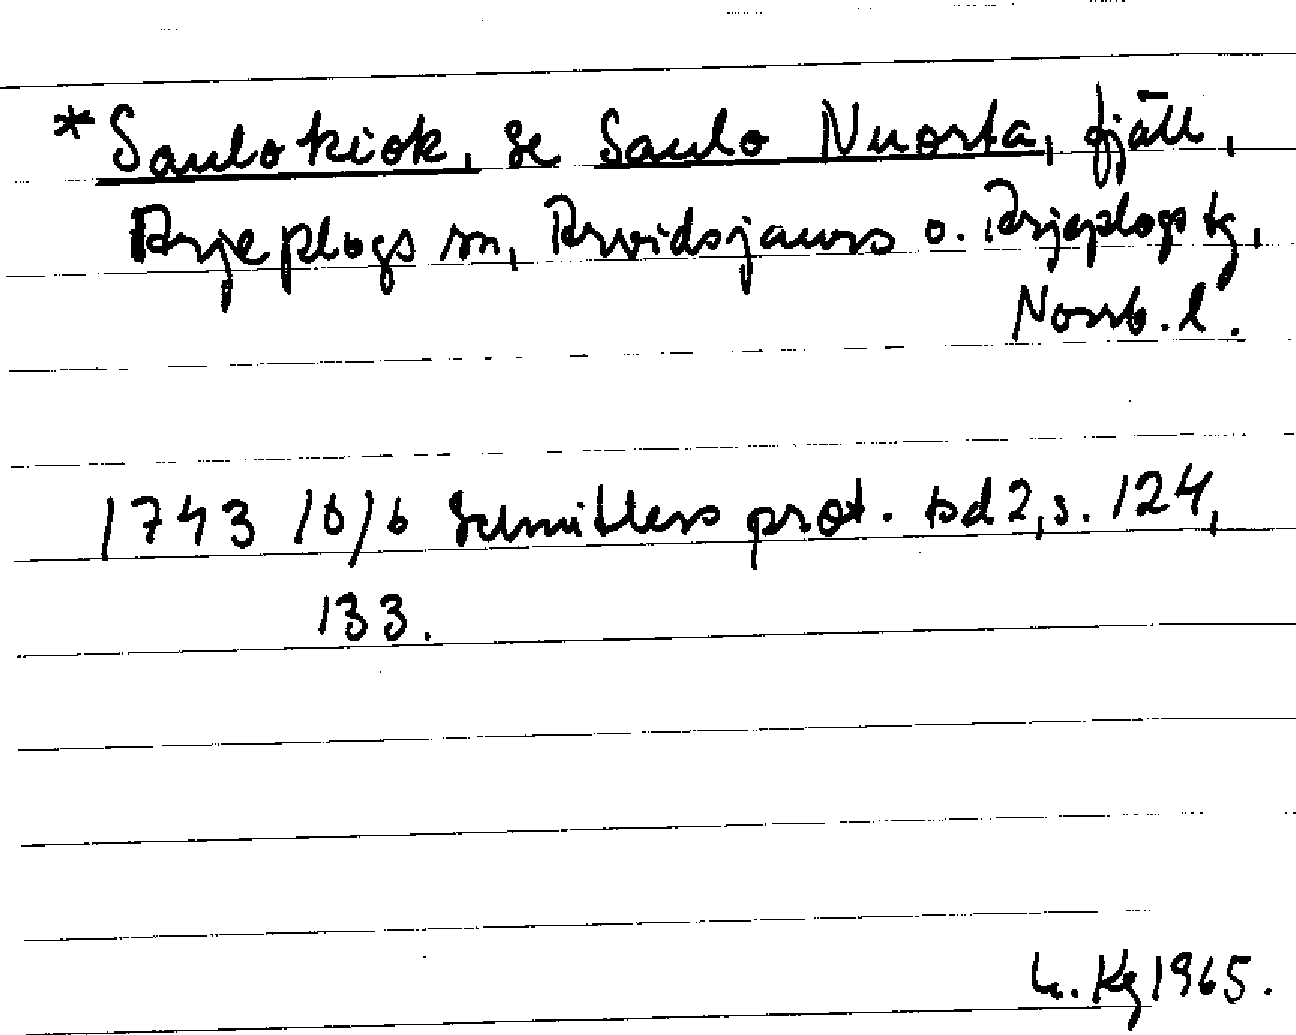 *Saulokiok, se Saulo Nuorta, fjäll,
Arjeplogs sn, Arvidsjaurs o. Arjeplogs tg,
Norrb. l.
1743 16/6 Schnitlers prot. bd 2, s. 124,
133.
Kg 1965.